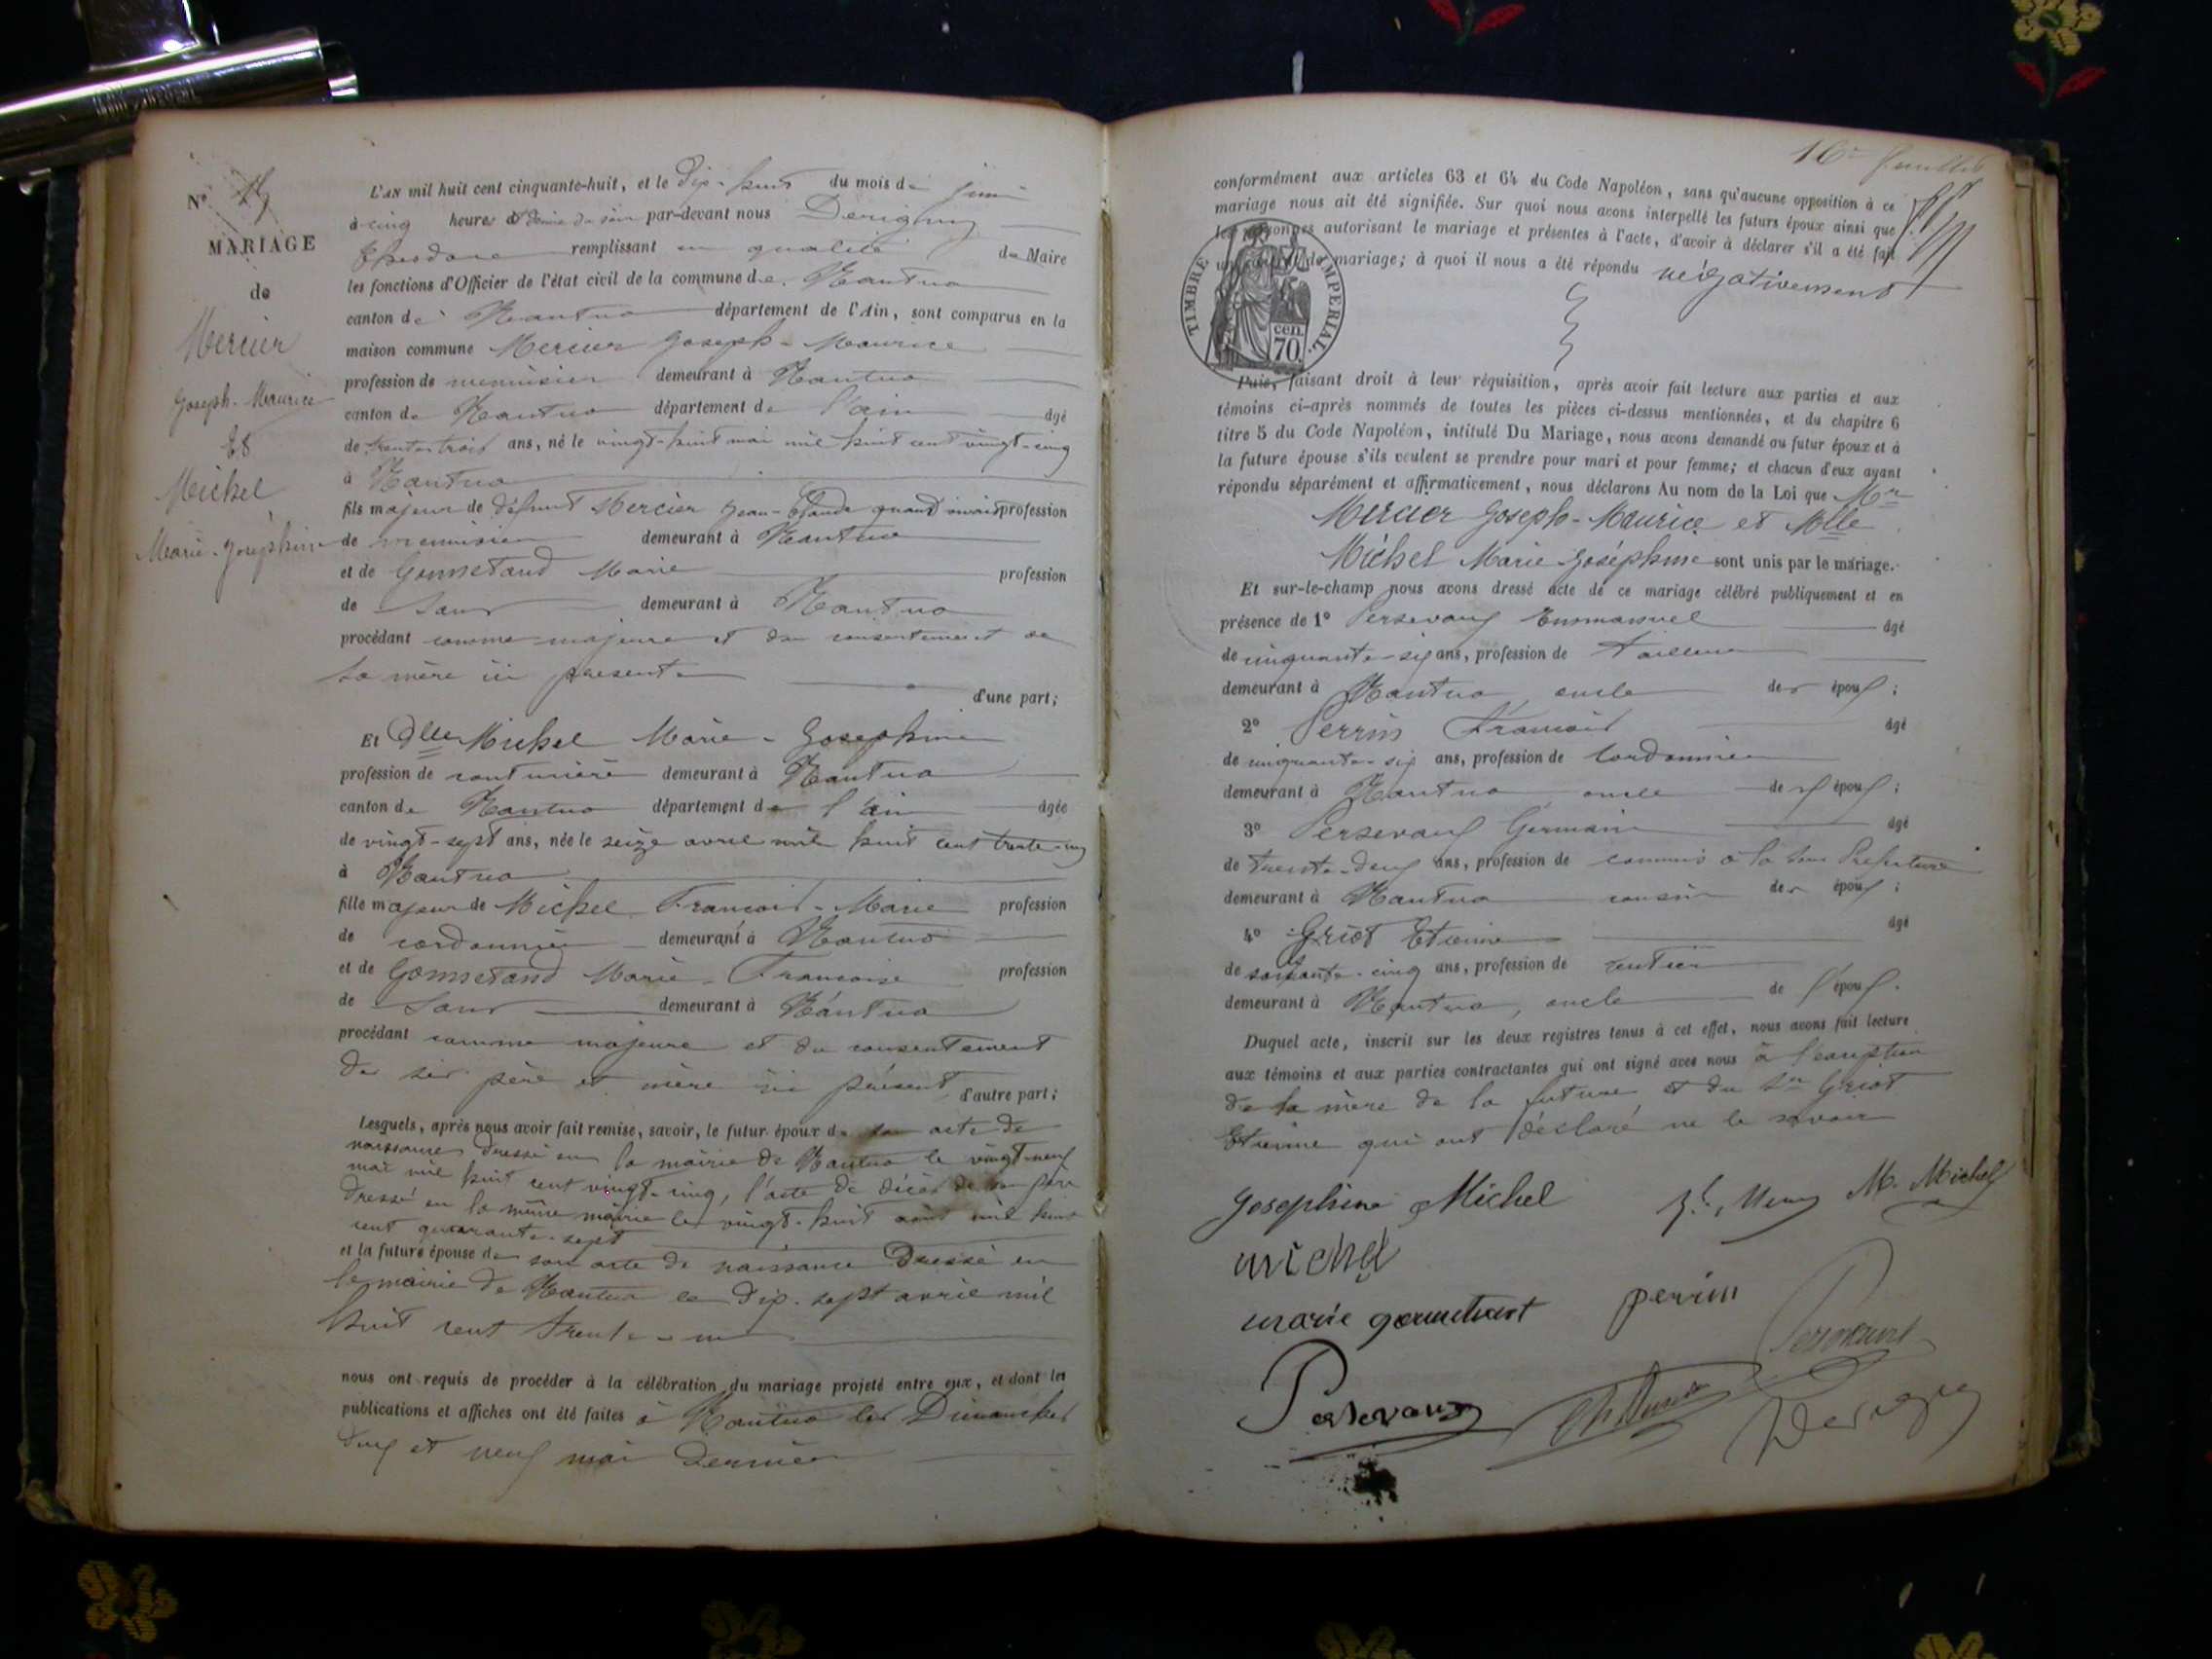 N° 15
MARIAGE
de
Mercier
Joseph-Maurice
Et
Michel
Marie-Joséphine
L'AN mil huit cent cinquante-huit, et le dix-huit du mois de juin
à cinq heures et demie du soir par-devant nous Derigny
Théodore remplissant en qualité de Maire
les fonctions d'Officier de l'état civil de la commune de Nantua
canton de Nantua département de l'Ain, sont comparus en la
maison commune Mercier Joseph-Maurice
profession de menuisier demeurant à Nantua
canton de Nantua département de l'ain âgé
de trente-trois ans, né le vingt-huit mai mil huit cent vingt-cinq
à Nantua
fils majeur de défunt Mercier Jean-Claude quand vivait profession
de menuisier demeurant à Nantua
et de Gonnetand Marie profession
de sans demeurant à Nantua
procédant comme majeure et du consentement de
sa mère ici présente
d'une part;
Et dlle Michel Marie-Josephine
profession de couturière demeurant à Nantua
canton de Nantua département de l'ain âgée
de vingt-sept ans, née le seize avril mil huit cent trente-un
à Nantua
fille majeur de Michel François-Marie profession
de cordonnier demeurant à Nantua
et de Gonnetand Marie-Françoise profession
de sans demeurant à Nantua
procédant comme majeure et du consentement
de ses père et mère ici présent d'autre part;
Lesquels, après nous avoir fait remise, savoir, le futur époux de son acte de
naissance dressé en la mairie de Nantua le vingt-neuf
mai mil huit cent vingt-cinq, l'acte de décès de son père
dressé en la même mairie le vingt-huit août mil huit
cent quarante-sept
et la future épouse de son acte de naissance dressé en
la mairie de Nantua le dix-sept avril mil
huit cent trente-un
nous ont requis de procéder à la célébration du mariage projeté entre eux, et dont les
publications et affiches ont été faites à Nantua les Dimanches
deux et neuf mai dernier
16e feuillet
conformément aux articles 63 et 64 du Code Napoléon, sans qu'aucune opposition à ce
mariage nous ait été signifiée. Sur quoi nous avons interpellé les futurs époux ainsi que
les personnes autorisant le mariage et présentes à l'acte, d'avoir à déclarer s'il a été fait
un contrat de mariage; à quoi il nous a été répondu négativement
TIMBRE IMPERIAL.
cen.
70
Puis, faisant droit à leur réquisition, après avoir fait lecture aux parties et aux
témoins ci-après nommés de toutes les pièces ci-dessus mentionnées, et du chapitre 6
titre 5 du Code Napoléon, intitulé Du Mariage, nous avons demandé au futur époux et à
la future épouse s'ils veulent se prendre pour mari et pour femme; et chacun d'eux ayant
répondu séparément et affirmativement, nous déclarons Au nom de la Loi que Mr
Mercier Joseph-Maurice et Mlle
Michel Marie-Joséphine sont unis par le mariage.
Et sur-le-champ nous avons dressé acte de ce mariage célébré publiquement et en
présence de 1° Persevaux Emmanuel âgé
de cinquante-six ans, profession de tailleur
demeurant à Nantua, oncle des époux;
2° Perrin François âgé
de cinquante-six ans, profession de cordonnier
demeurant à Nantua, oncle des époux;
3° Persevaux Germain âgé
de trente-deux ans, profession de commis à la sous Préfecture
demeurant à Nantua cousin des époux;
4° Griot Etienne âgé
de soixante-cinq ans, profession de rentier
demeurant à Nantua, oncle de l'époux.
Duquel acte, inscrit sur les deux registres tenus à cet effet, nous avons fait lecture
aux témoins et aux parties contractantes qui ont signé avec nous à l'exception
de la mère de la future et du Sr Griot
Etienne qui ont déclaré ne le savoir
Josephine Michel M. Michel
michel
marie gonnetant perrin
Persevaux
Derigny